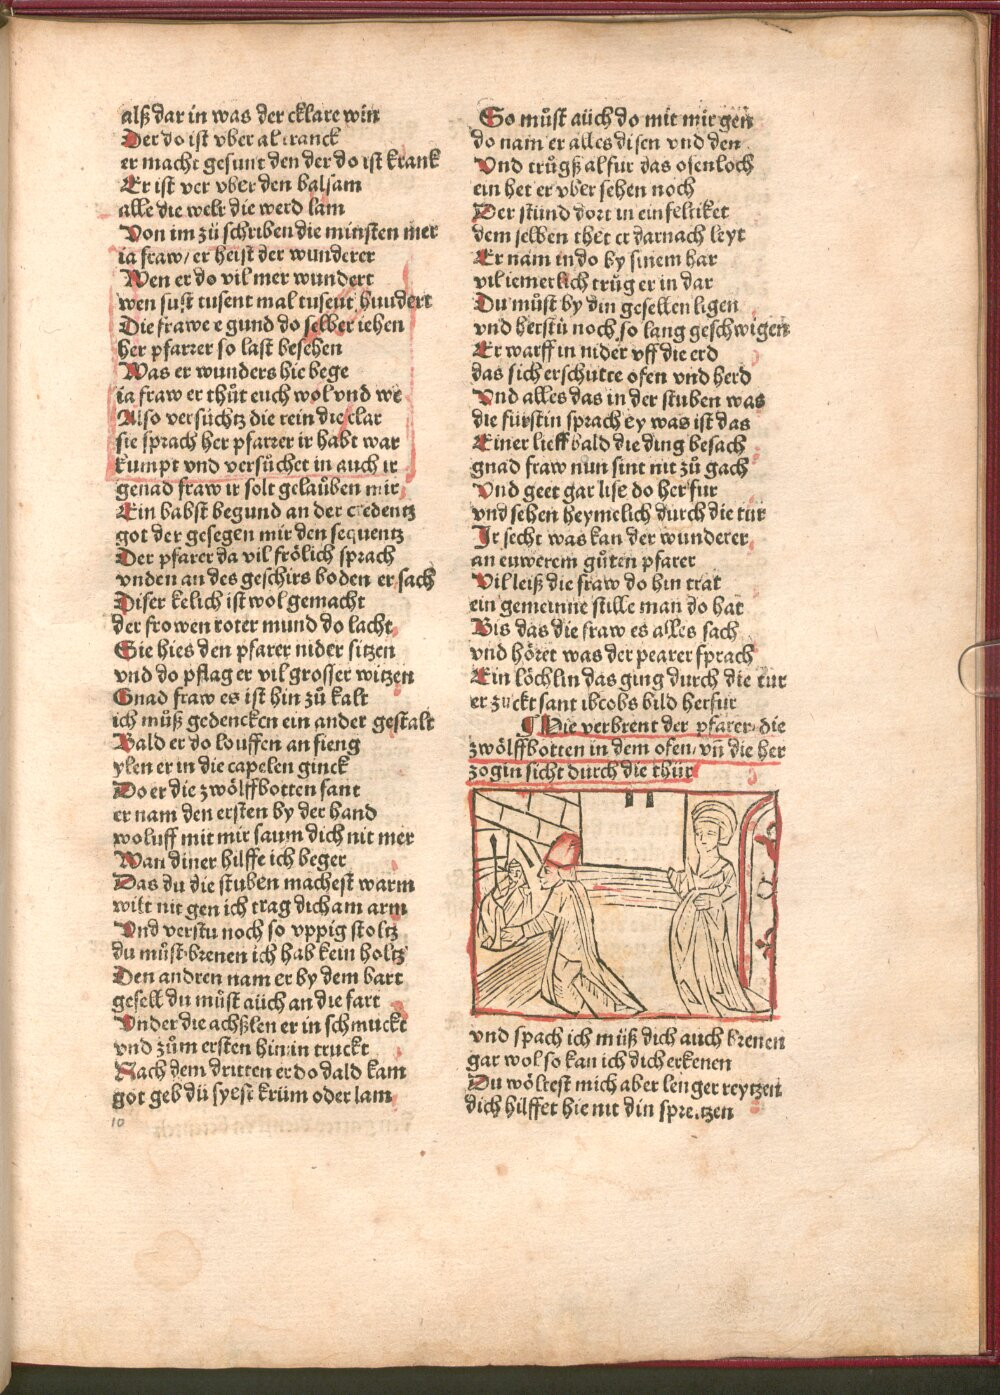 alß dar in was der cklare win
Der do ist vber al tranck
er macht gesunt den der do ist krank
Er ist ver vber den balsam
alle die welt die werd lam
Von im zü schriben die minsten mer
ia fraw/ er heist der wunderer
Wen er do vil mer wundert
wen sust tusent mal tusent hundert
Die frawe e gund do selber iehen
her pfarrer so last besehen
Was er wunders hie bege
ia fraw er thůt euch wol vnd we
Also versüchtz die rein die clar
sie sprach her pfarrer ir habt war
kumpt vnd versůchet in auch ir
genad fraw ir solt gelaůben mir
Ein babst begund an der credentz
got der gesegen mir den sequentz
Der pfarer da vil frölich sprach
vnden an des geschirs boden er sach
Diser kelich ist wol gemacht
der frowen roter mund do lacht
Sie hies den pfarer nider sitzen
vnd do pflag er vil grosser witzen
Gnad fraw es ist hin zů kalt
ich můß gedencken ein ander gestalt
Bald er do louffen an fieng
ylen er in die capelen ginck
Do er die zwölffbotten fant
er nam den ersten by der hand
woluff mit mir saum dich nit mer
Wan diner hilffe ich beger
Das du die stuben machest warm
wilt nit gen ich trag dich am arm
Vnd verstu noch so vppig stoltz
du můst brenen ich hab kein holtz
Den andren nam er by dem bart
gesell du můst aüch an die fart
Vnder die achßlen er in schmuckt
vnd zům ersten hin in truckt
Nach dem dritten er do dald kam
got geb dü syest krüm oder lam
10
So můst aüch do mit mir gen
do nam er alles disen vnd den
Vnd trůgß al fur das ofenloch
ein het er vber sehen noch
Der stünd dort in einfeltiket
dem selben thet er darnach leyt
Er nam in do by sinem har
vil iemerlich trůg er in dar
Du můst by din gesellen ligen
vnd herstü noch so lang geschwigen
Er warff in nider vff die erd
das sich erschutte ofen vnd herd
Vnd alles das in der stuben was
die fürstin sprach ey was ist das
Einer lieff bald die ding besach
gnad fraw nun sint nit zů gach
Vnd geet gar lise do herfur
vnd sehen heymelich durch die tür
Ir secht was kan der wunderer
an euwerem gůten pfarer
Vil leiß die fraw do hin trat
ein gemeinne stille man do hat
Bis das die fraw es alles sach
vnd höret was der pearer sprach
Ein löchlin das ging durch die tur
er zuckt sant ibcobs bild herfur
¶ Hie verbrent der pfarer die
zwölffbotten in dem ofen/ vñ die her
zogin sicht durch die thür
vnd spach ich müß dich auch brenen
gar wol so kan ich dich erkenen
Du wöltest mich aber lenger reytzen
dich hilffet hie nit din spretzen